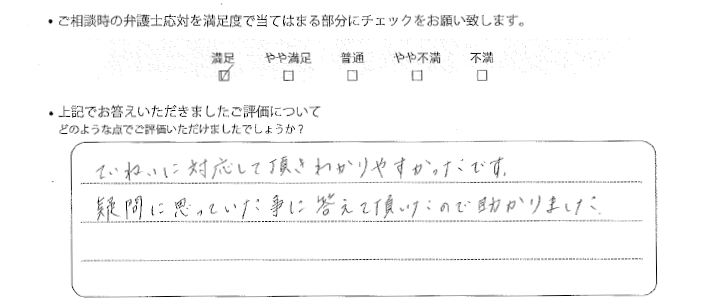 • ご相談時の弁護士応対を満足度で当てはまる部分にチェックをお願い致します。
満足 やや満足 普通 やや不満 不満
☑ □ □ □ □
• 上記でお答えいただきましたご評価について
どのような点でご評価いただけましたでしょうか？
ていねいに対応して頂きわかりやすかったです。
疑問に思っていた事に答えて頂いたので助かりました